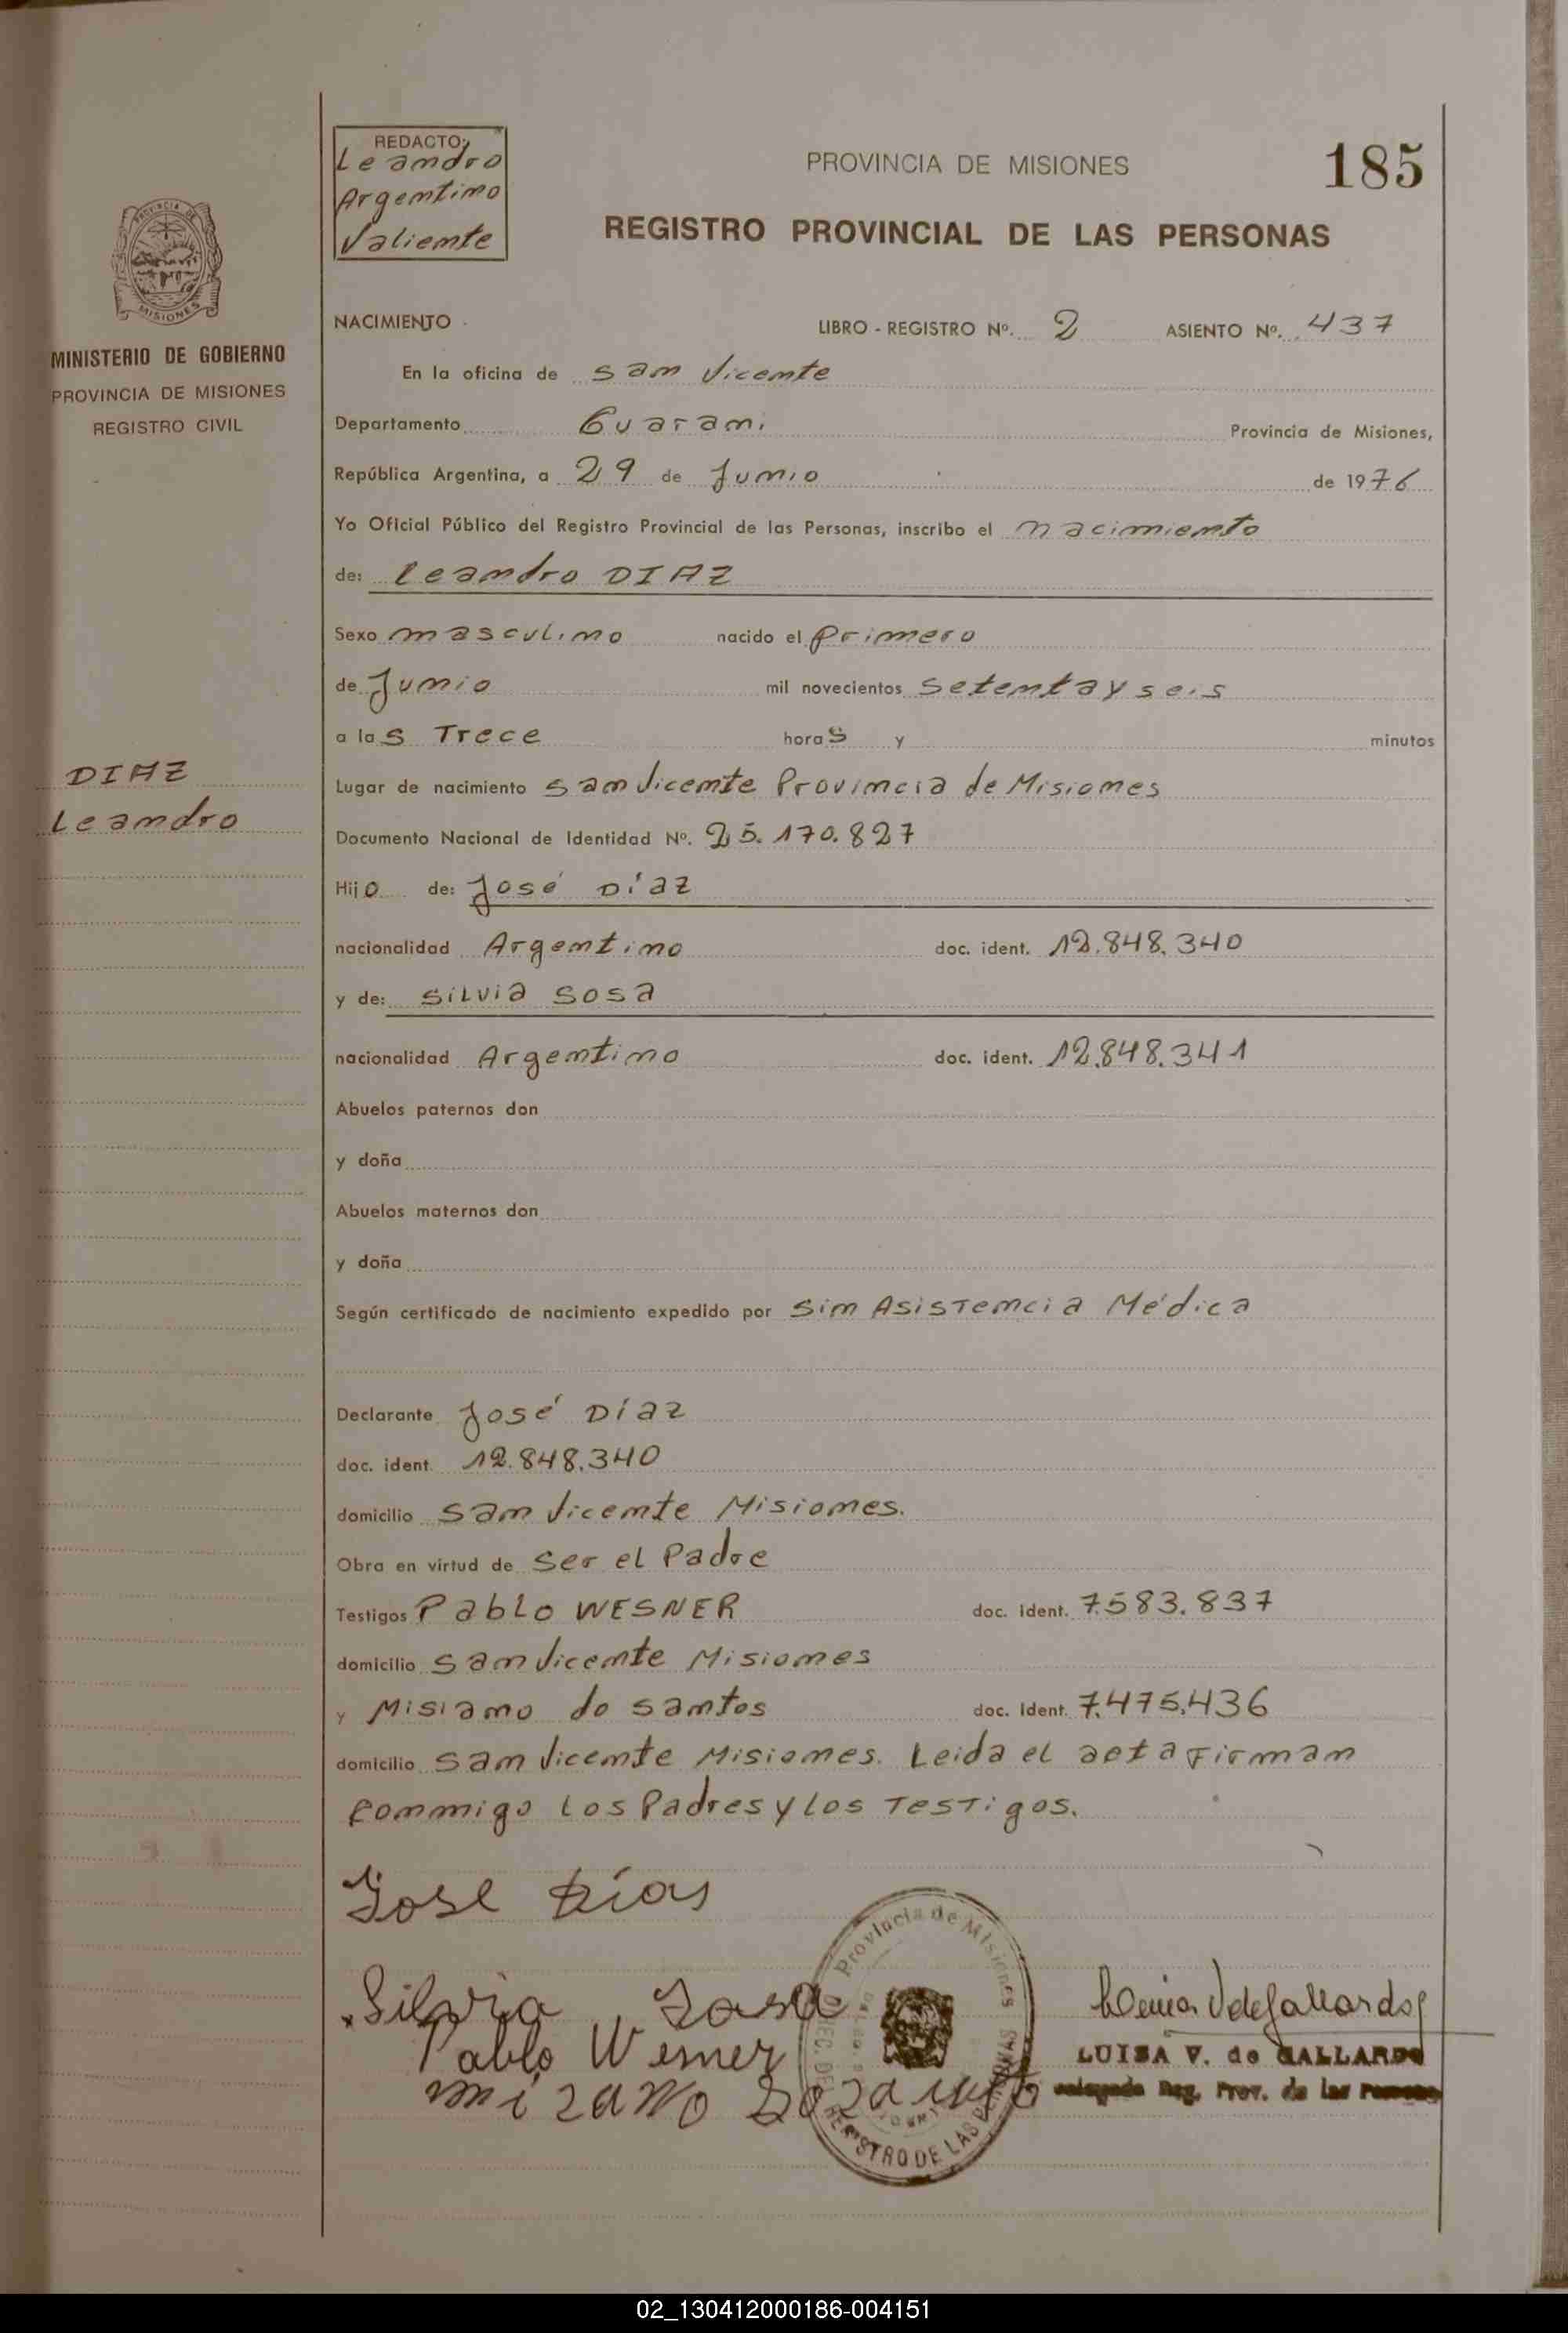 REDACTO:
Leandro
Argentino
Valiente
PROVINCIA DE MISIONES
185
REGISTRO PROVINCIAL DE LAS PERSONAS
PROVINCIA DE
MISIONES
MINISTERIO DE GOBIERNO
PROVINCIA DE MISIONES
REGISTRO CIVIL
NACIMIENTO LIBRO - REGISTRO Nº. 2 ASIENTO Nº. 437
En la oficina de San Vicente
Departamento Guarani Provincia de Misiones,
República Argentina, a 29 de Junio de 1976
Yo Oficial Público del Registro Provincial de las Personas, inscribo el nacimiento
de: Leandro DIAZ
Sexo masculino nacido el Primero
de Junio mil novecientos setenta y seis
a las Trece horas y minutos
DIAZ
Leandro
Lugar de nacimiento San Vicente Provincia de Misiones
Documento Nacional de Identidad Nº. 25.170.827
Hijo de: José Díaz
nacionalidad Argentino doc. ident. 12.848.340
y de: Silvia Sosa
nacionalidad Argentino doc. ident. 12.848.341
Abuelos paternos don
y doña
Abuelos maternos don
y doña
Según certificado de nacimiento expedido por Sin Asistencia Médica
Declarante José Díaz
doc. ident. 12.848.340
domicilio San Vicente Misiones.
Obra en virtud de Ser el Padre
Testigos Pablo WESNER doc. ident. 7.583.837
domicilio San Vicente Misiones
y Misiano do Santos doc. Ident. 7.475.436
domicilio San Vicente Misiones. Leida el acta Firman
conmigo los Padres y los Testigos.
Jose Dias
Silvia Sosa
Pablo Wesner
Provincia de Misiones
REGISTRO DE LAS PERSONAS
LUISA V. de GALLARDO
Delegada Reg. Prov. de las Personas
02_130412000186-004151